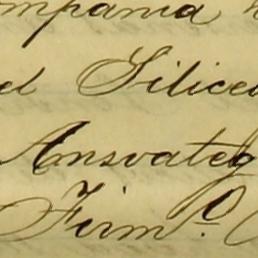 ompania
el Silice
Ansvateg
Firm.º